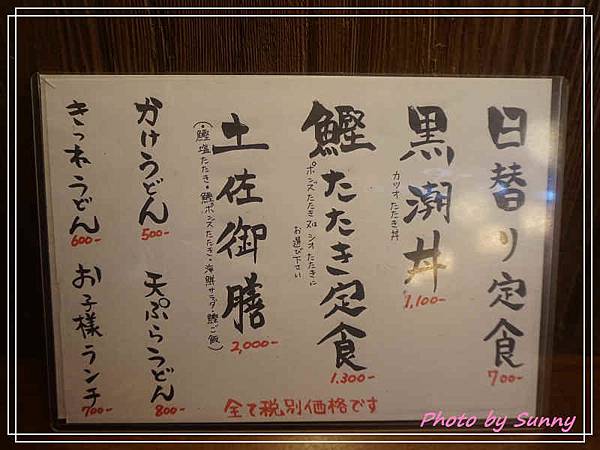 日替り定食
700-
黒潮丼
カツオたたき丼
1,100-
鰹たたき定食
ポンズたたき又は シオたたきに
お選び下さい
1.300-
土佐御膳
(・鰹塩たたき・鰹ポンズたたき・海鮮サラダ・鰹ご飯)
2,000-
かけうどん
500-
天ぷらうどん
800-
きつねうどん
600-
お子様ランチ
700-
全て税別価格です
Photo by Sunny